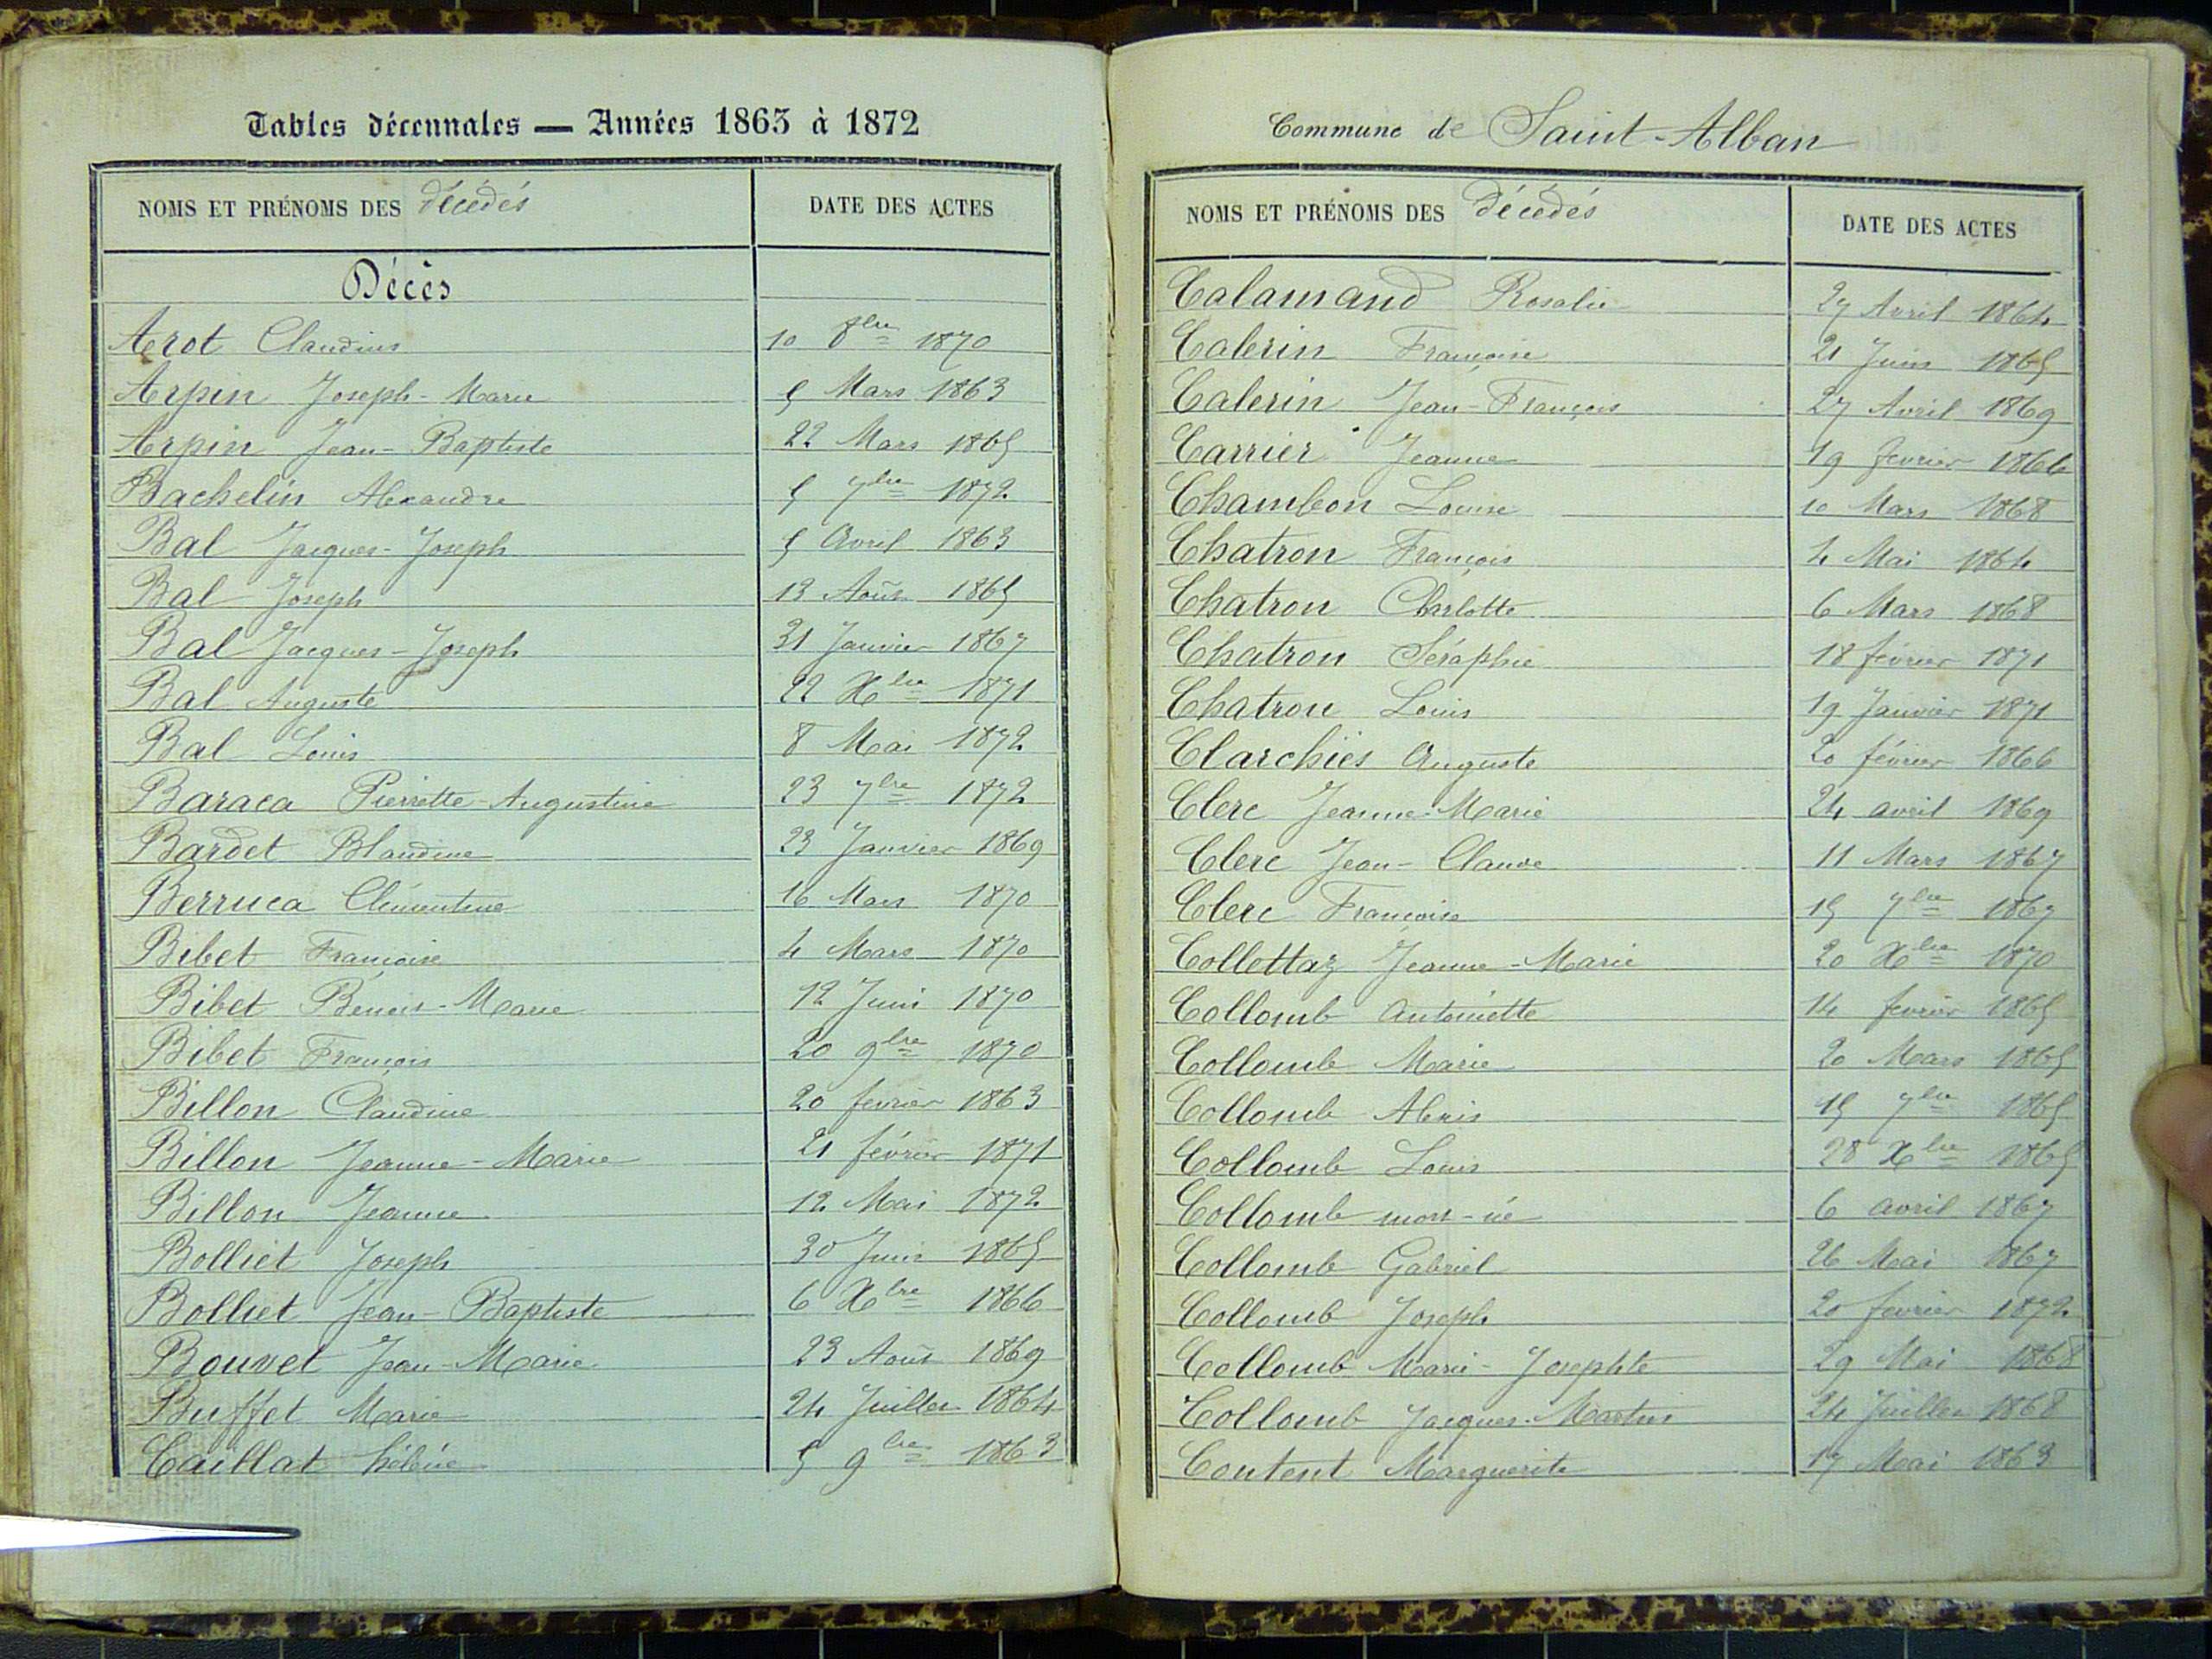 Tables décennales — Années 1863 à 1872
NOMS ET PRÉNOMS DES décédés DATE DES ACTES
Décès
Aerot Claudius 10 8bre 1870
Arpin Joseph-Marie 5 Mars 1863
Arpin Jean-Baptiste 22 Mars 1865
Bachelin Alexandre 5 7bre 1872
Bal Jacques-Joseph 5 Avril 1863
Bal Joseph 13 Août 1865
Bal Jacques-Joseph 31 Janvier 1867
Bal Auguste 22 Xbre 1871
Bal Louis 8 Mai 1872
Baraca Pierrette-Augustine 23 7bre 1872
Bardet Blandine 23 Janvier 1869
Berruca Clémentine 16 Mars 1870
Bibet Françoise 4 Mars 1870
Bibet Benoit-Marie 12 Juin 1870
Bibet François 20 9bre 1870
Billon Claudine 20 fevrier 1863
Billon Jeanne-Marie 21 février 1871
Billon Jeanne 12 Mai 1872
Bolliet Joseph 30 Juin 1865
Bolliet Jean-Baptiste 6 Xbre 1866
Bouvet Jean-Marie 23 Août 1869
Buffet Marie 24 Juillet 1864
Caillat hélène 5 9bre 1863
Commune de Saint-Alban
NOMS ET PRÉNOMS DES décédés DATE DES ACTES
Calamand Rosalie 27 Avril 1864
Calerin Françoise 21 Juin 1865
Calerin Jean-François 27 Avril 1869
Carrier Jeanne 19 fevrier 1866
Chambon Louise 10 Mars 1868
Chatron François 4 Mai 1864
Chatron Charlotte 6 Mars 1868
Chatron Séraphie 18 février 1871
Chatron Louis 19 Janvier 1871
Clarchies Auguste 20 février 1866
Clerc Jeanne-Marie 24 avril 1869
Clerc Jean-Claude 11 Mars 1867
Clerc Françoise 15 7bre 1867
Collottaz Jeanne-Marie 20 Xbre 1870
Collomb Antoinette 14 fevrier 1865
Collomb Marie 20 Mars 1865
Collomb Alexis 15 7bre 1865
Collomb Louis 28 Xbre 1865
Collomb mort-né 6 avril 1867
Collomb Gabriel 26 Mai 1867
Collomb Joseph 20 fevrier 1872
Collomb Marie-Josephte 29 Mai 1868
Collomb Jacques-Martin 24 Juillet 1868
Content Marguerite 17 Mai 1863